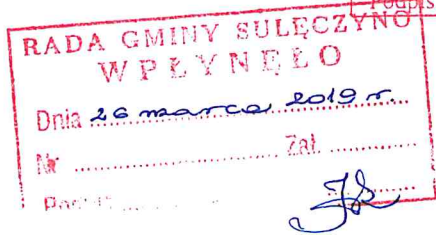 Podpis
RADA GMINY SULĘCZYNO
WPŁYNĘŁO
Dnia 26 marca 2019 r.
Nr .................... Zał. ..............